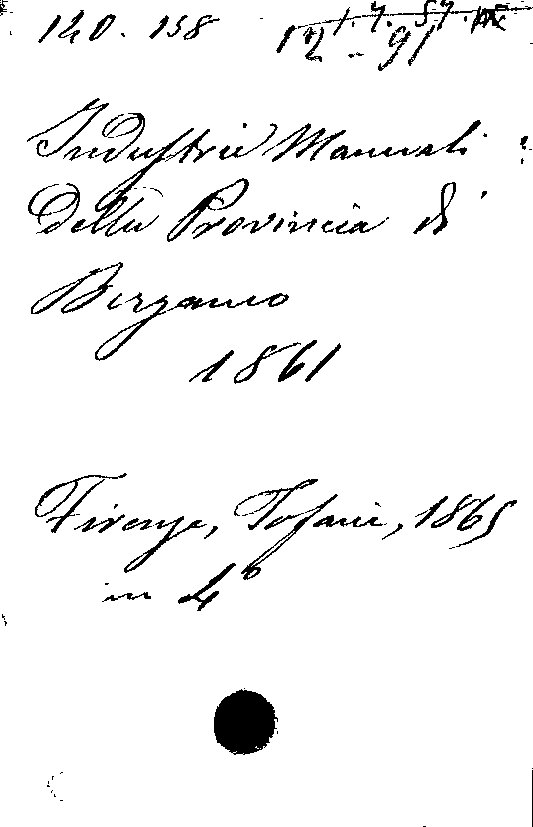 140. 158
1.7.57.IX
12 - 91
Industrie Manuali
della Provincia di
Bergamo
1861
Firenze, Tofani, 1865
in 4º